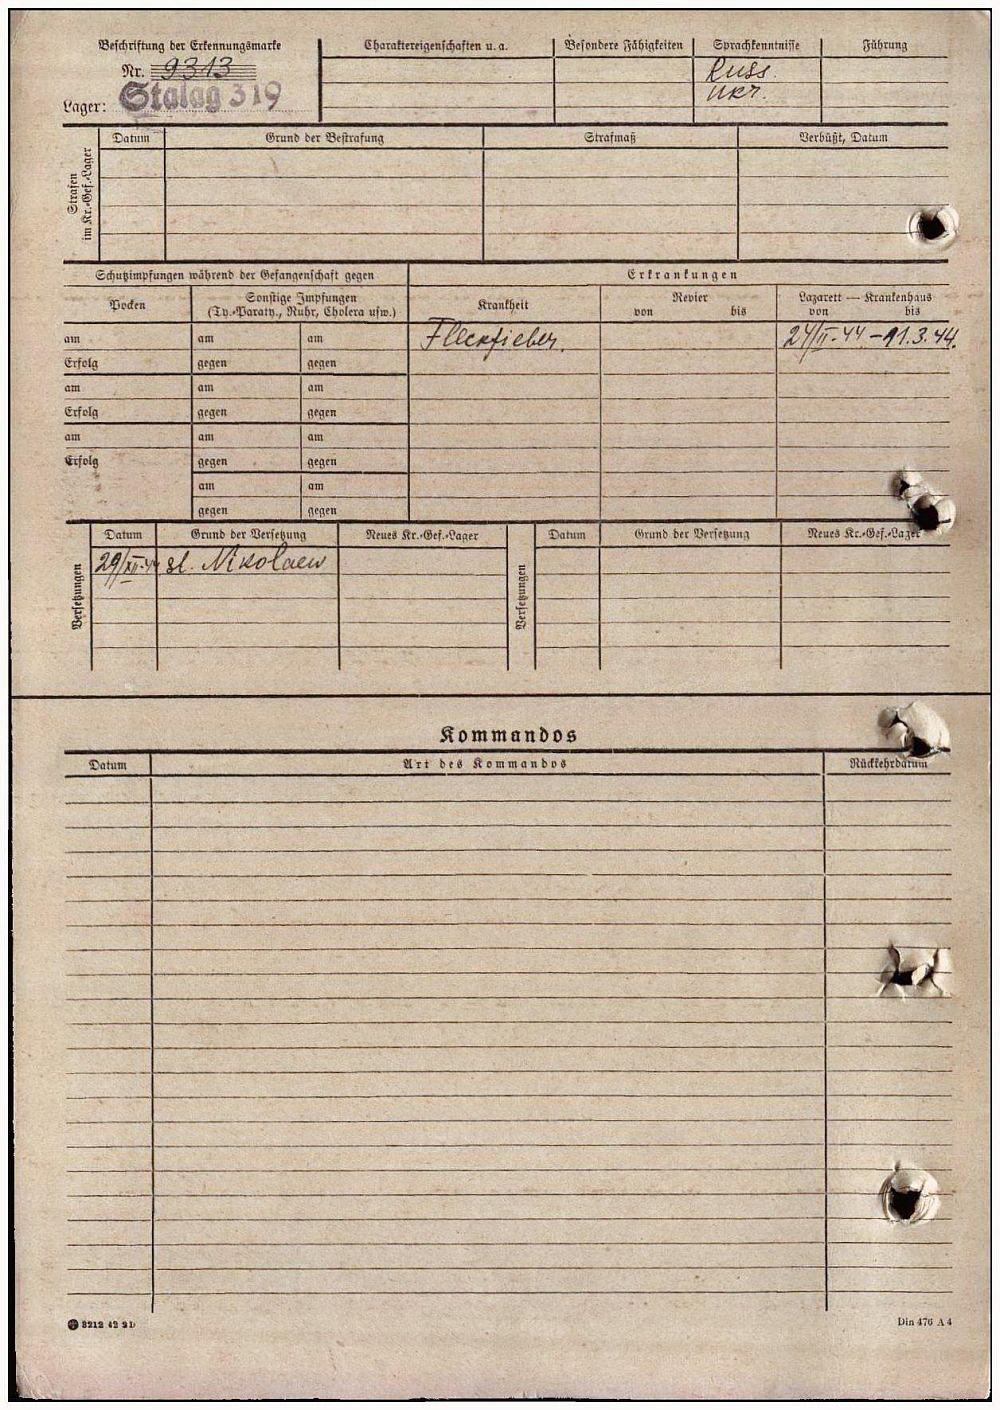 Beschriftung der Erkennungsmarke
Nr. 9313
Lager: Stalag 319
Charaktereigenschaften u. a.
Besondere Fähigkeiten
Sprachkenntnisse
Russ.
Ukr.
Führung
Strafen
im Kr.-Gef.-Lager
Datum
Grund der Bestrafung
Strafmaß
Verbüßt, Datum
Schutzimpfungen während der Gefangenschaft gegen
Erkrankungen
Pocken
Sonstige Impfungen
(Ty.-Paraty., Ruhr, Cholera usw.)
Krankheit
Revier
von bis
Lazarett — Krankenhaus
von bis
am am am Fleckfieber. 24/II-44 - 11.3.44.
Erfolg gegen gegen
am am am
Erfolg gegen gegen
am am am
Erfolg gegen gegen
am am
gegen gegen
Versetzungen
Datum Grund der Versetzung Neues Kr.-Gef.-Lager
Nikolaew
Versetzungen
Datum Grund der Versetzung Neues Kr.-Gef.-Lager
Kommandos
Datum Art des Kommandos Rückkehrdatum
3212 42 2D
Din 476 A 4